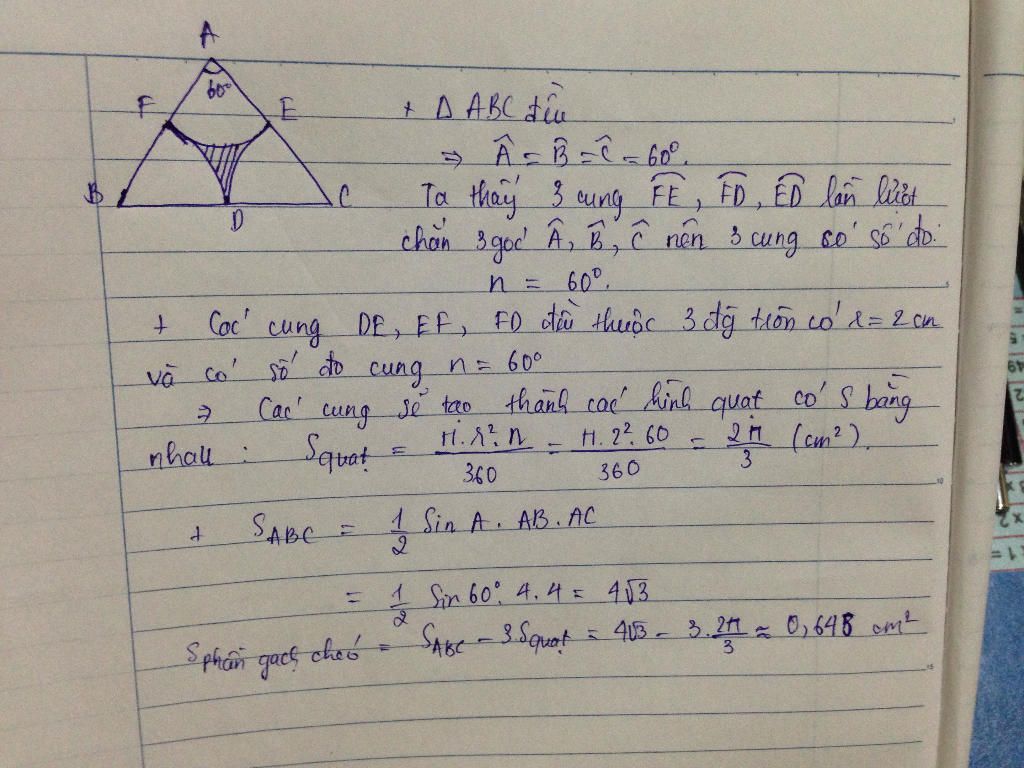 A
60°
F
E
B
D
C
+ Δ ABC đều
⇒ Â = B̂ = Ĉ = 60°.
Ta thấy 3 cung FE, FD, ED lần lượt
chắn 3 góc Â, B̂, Ĉ nên 3 cung có số đo:
n = 60°.
+ Các cung DE, EF, FD đều thuộc 3 đg tròn có r = 2 cm
và có số đo cung n = 60°
⇒ Các cung sẽ tạo thành các hình quạt có S bằng
nhau : S quạt = π.r².n/360 = π.2².60/360 = 2π/3 (cm²).
+ S ABC = 1/2 Sin A . AB . AC
= 1/2 Sin 60°. 4.4 = 4√3
S phần gạch chéo = S ABC - 3 S quạt = 4√3 - 3.2π/3 ≈ 0,645 cm²